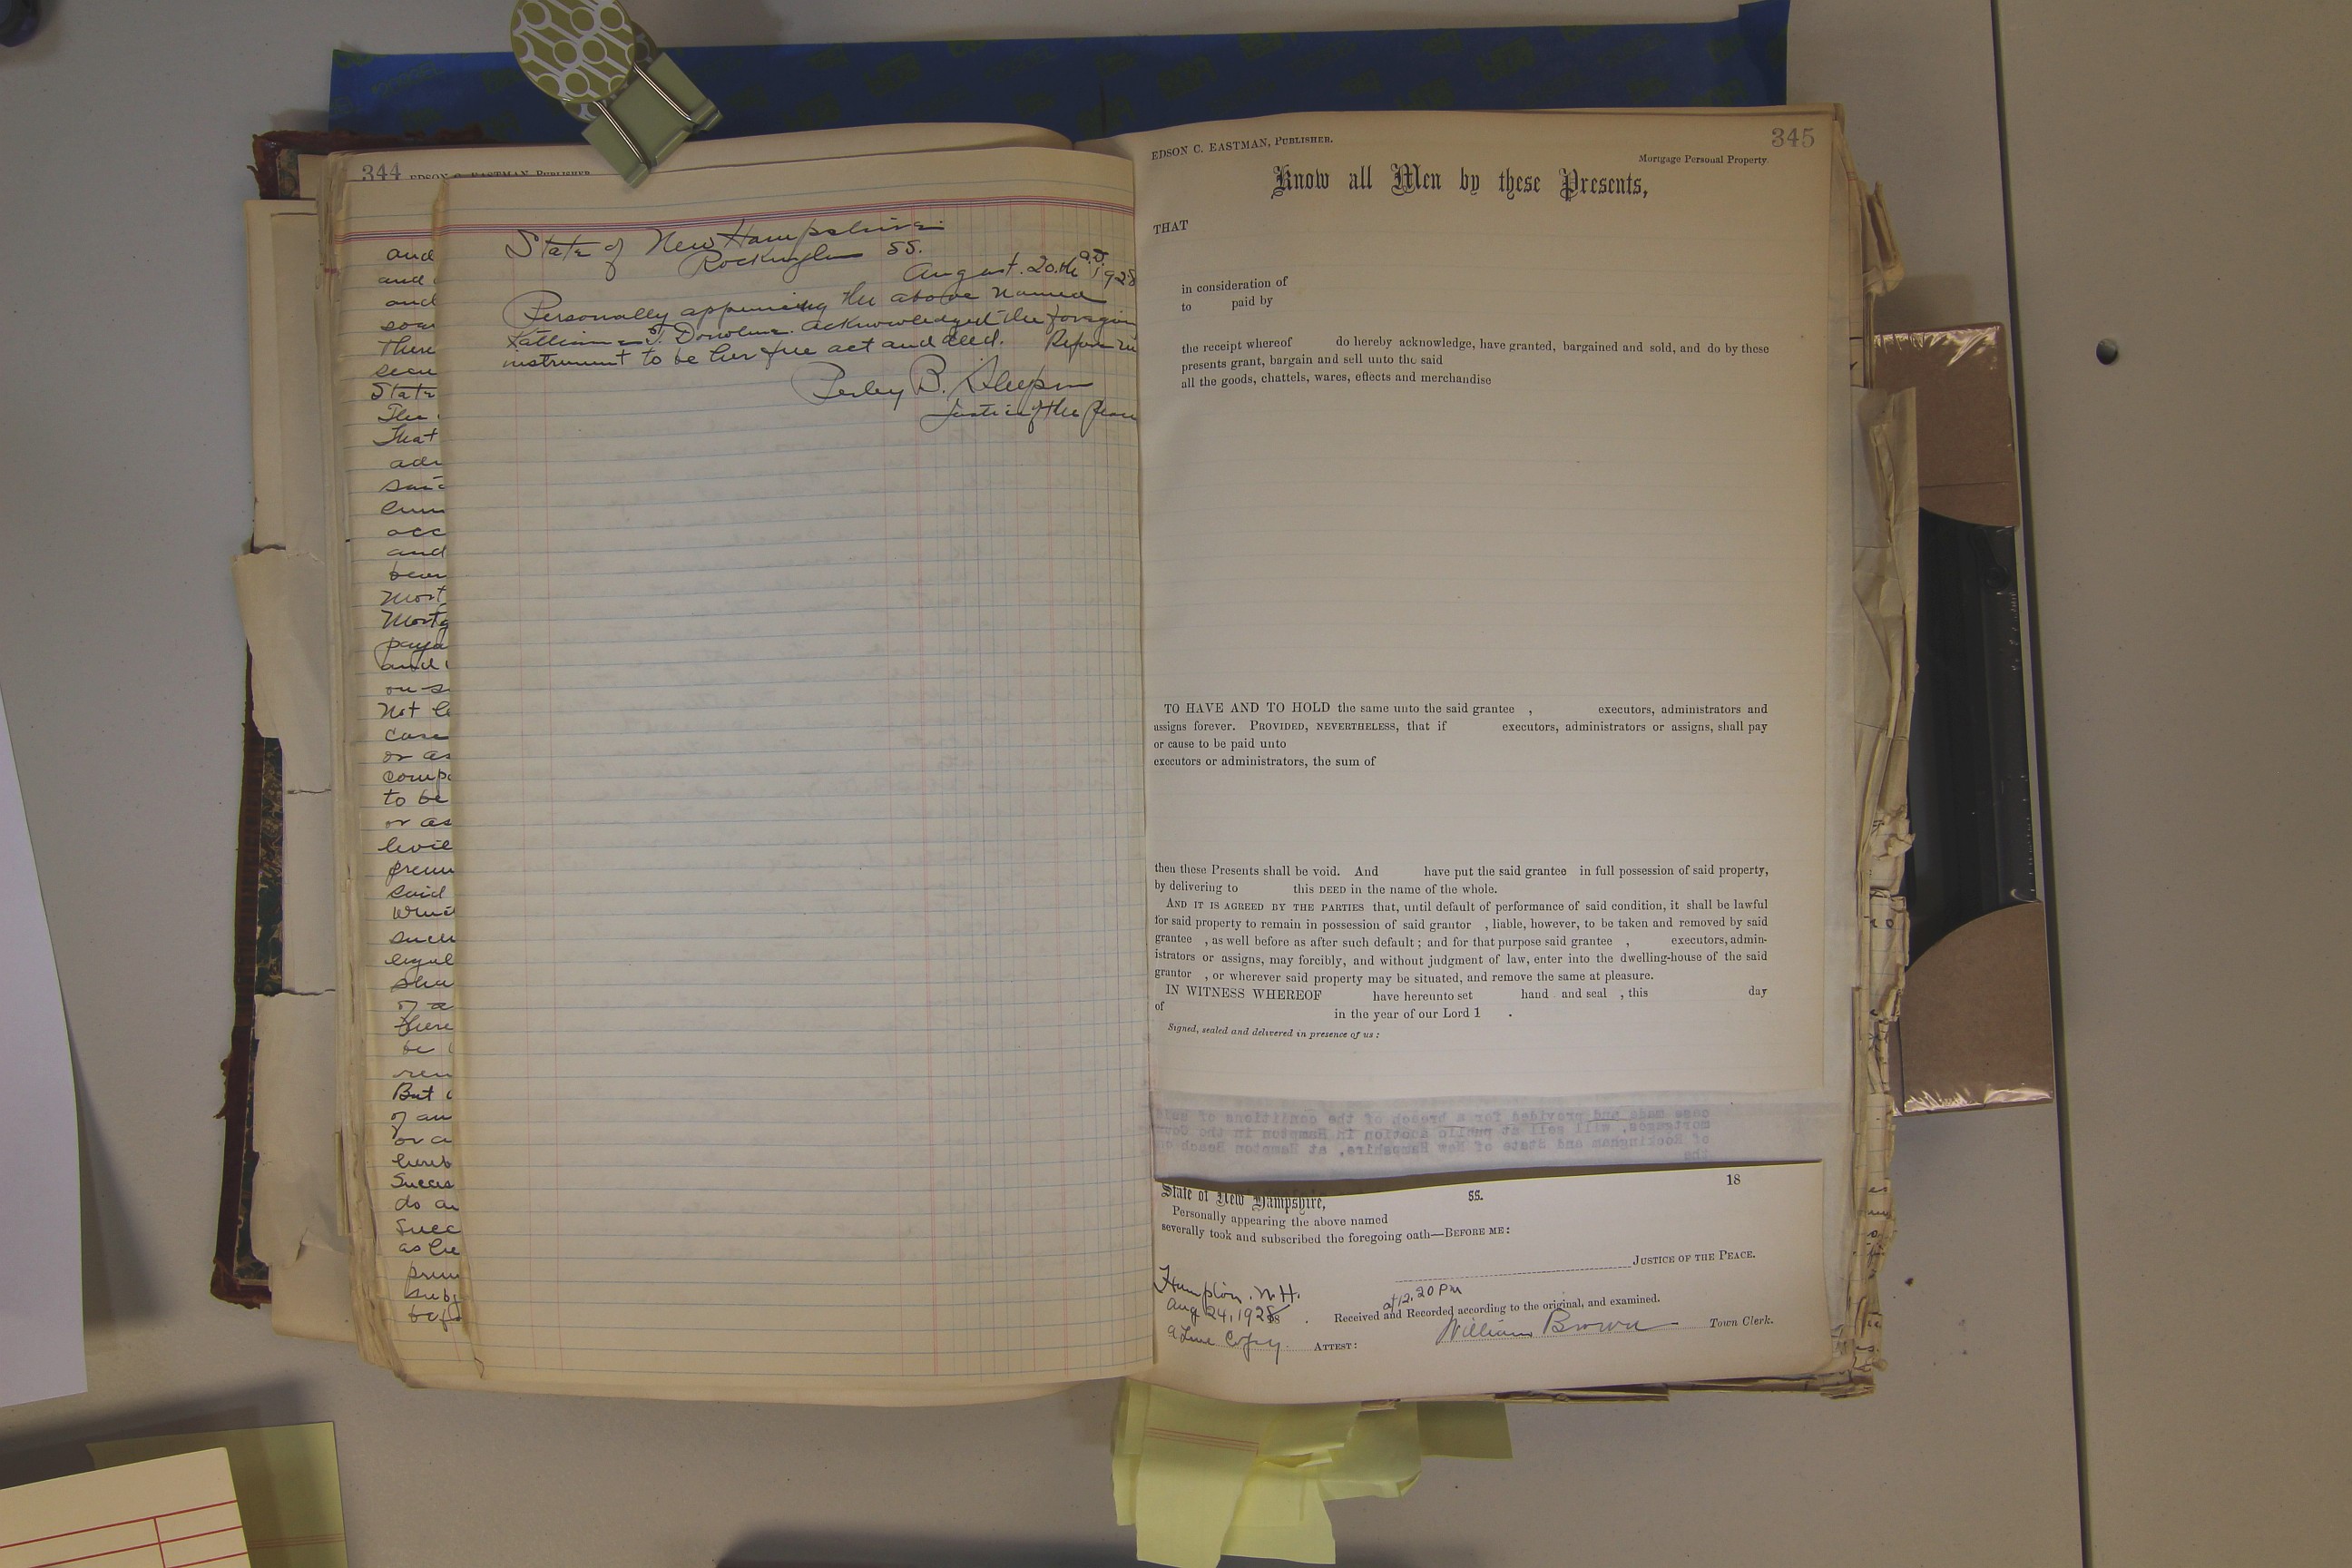 344 EDSON C. EASTMAN, PUBLISHER.
and
and
and
soar
There
secu
State
The
That
adr
said
Cum
acc
and
bear
Mort
Mortg
paya
and
on s
Not le
case
or as
compe
to be
or as
levie
prem
said
Whic
such
legal
shal
of a
there
be
ren
But
of an
or a
hereb
Succes
do an
Succ
as he
prem
subj
befo
State of New Hampshire
Rockingham SS.
August. 20.th a.d. 1928
Personally appearing the above named
Kathleen T. acknowledged the foregoin
instrument to be her free act and deed. Before me
Perley B.
Justice of the Peace
345
EDSON C. EASTMAN, PUBLISHER.
Mortgage Personal Property.
Know all Men by these Presents,
THAT
in consideration of
to paid by
the receipt whereof do hereby acknowledge, have granted, bargained and sold, and do by these
presents grant, bargain and sell unto the said
all the goods, chattels, wares, effects and merchandise
TO HAVE AND TO HOLD the same unto the said grantee , executors, administrators and
assigns forever. PROVIDED, NEVERTHELESS, that if executors, administrators or assigns, shall pay
or cause to be paid unto
executors or administrators, the sum of
then these Presents shall be void. And have put the said grantee in full possession of said property,
by delivering to this DEED in the name of the whole.
AND IT IS AGREED BY THE PARTIES that, until default of performance of said condition, it shall be lawful
for said property to remain in possession of said grantor , liable, however, to be taken and removed by said
grantee , as well before as after such default ; and for that purpose said grantee , executors, admin-
istrators or assigns, may forcibly, and without judgment of law, enter into the dwelling-house of the said
grantor , or wherever said property may be situated, and remove the same at pleasure.
IN WITNESS WHEREOF have hereunto set hand and seal , this day
of in the year of our Lord 1 .
Signed, sealed and delivered in presence of us :
case made and provided for a breach of the conditions of said
mortgages, will sell at public Auction in Hampton in the County
of Rockingham and State of New Hampshire, at Hampton Beach on
the
18
State of New Hampshire, SS.
Personally appearing the above named
severally took and subscribed the foregoing oath—BEFORE ME :
JUSTICE OF THE PEACE.
Hampton. N.H.
Aug 24, 1928 at 12.20 PM
Received and Recorded according to the original, and examined.
A True Copy ATTEST : William Brown Town Clerk.